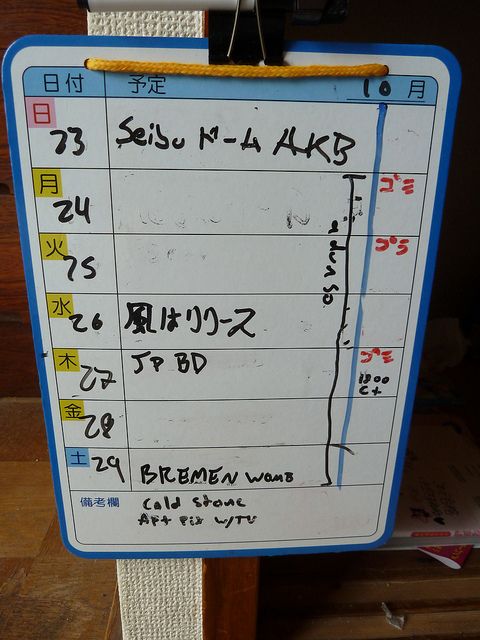 日付 予定 10月
日 23 Seibu ドーム AKB
月 24 ゴミ
火 25 プラ
水 26 風はリリース
木 27 JP BD ゴミ
1800
金 28
土 29 BREMEN WOMB
備考欄 Cold Stone
Apt Pix w/TV